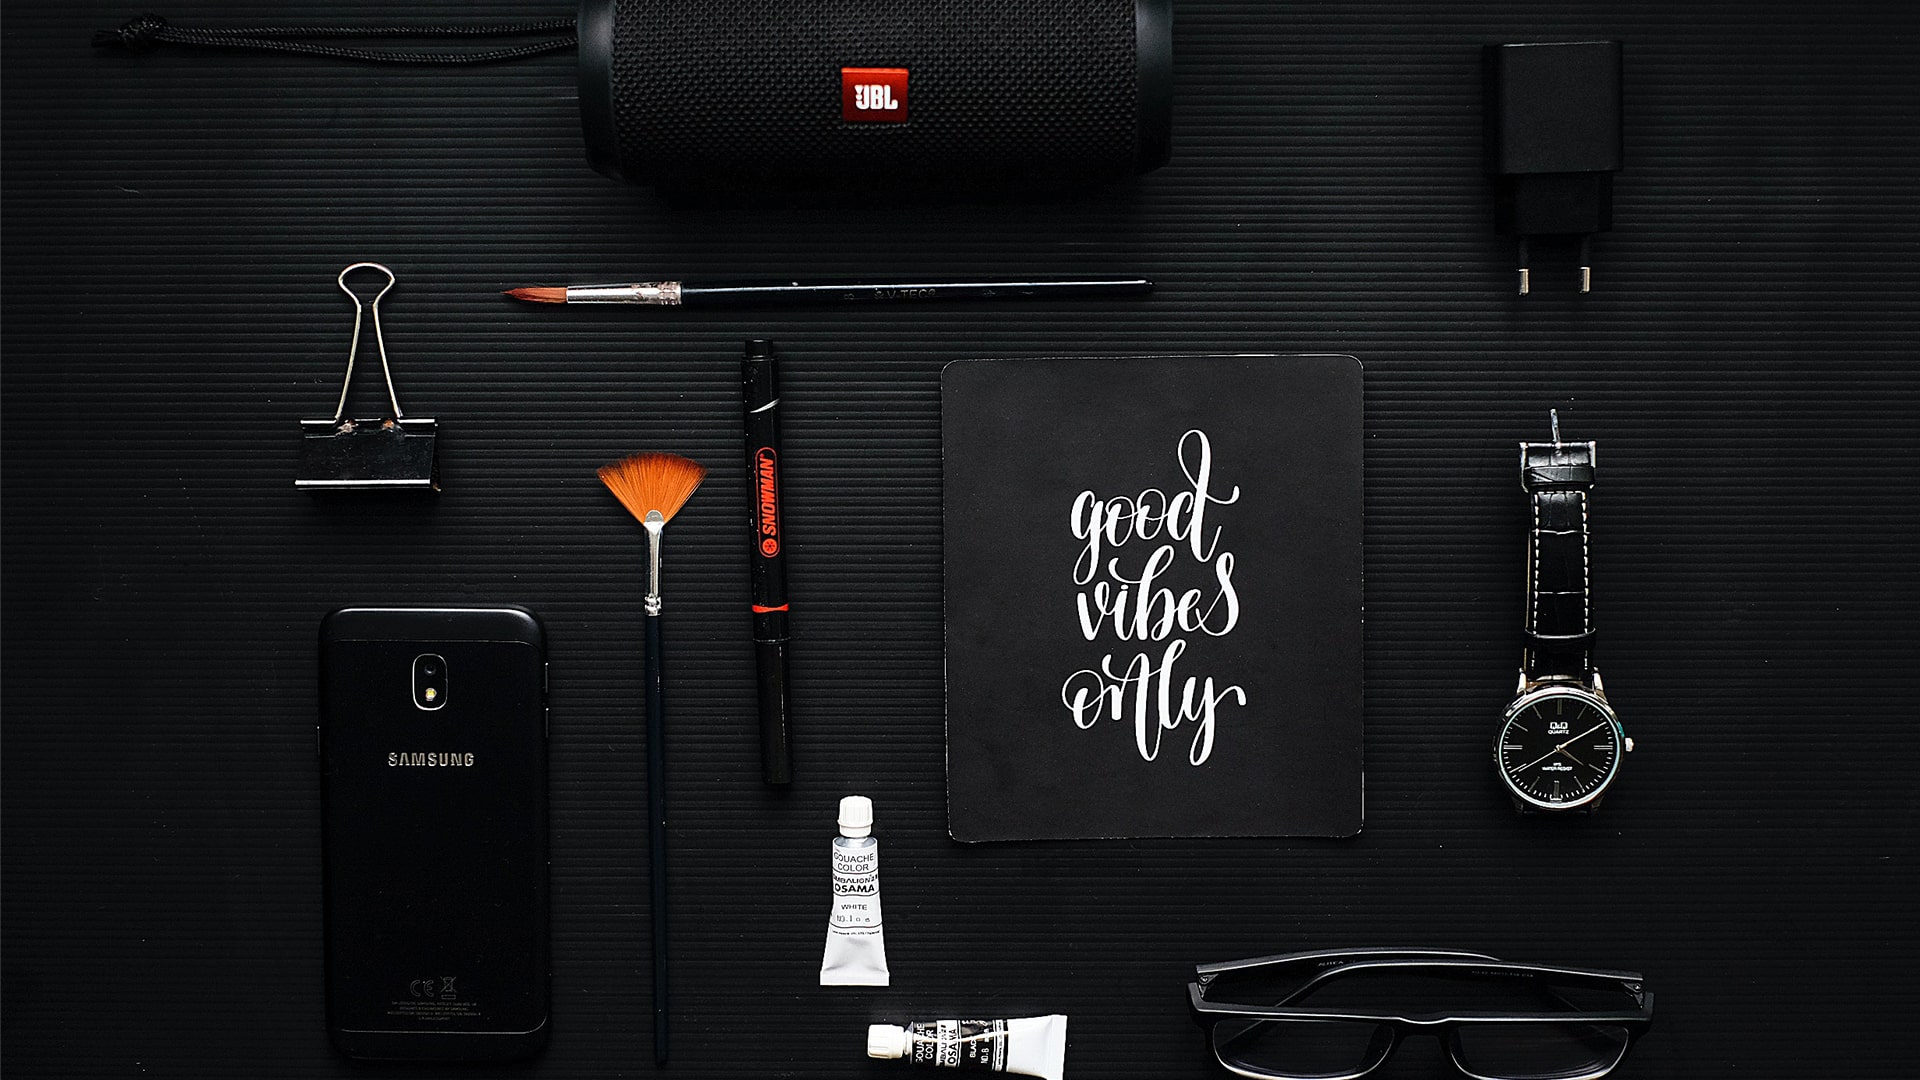 JBL
V-TEC
SNOWMAN
good
vibes
only
Q&Q
QUARTZ
WATER RESIST
SAMSUNG
CE
GOUACHE
COLOR
OSAMA
WHITE
GOUACHE
COLOR
OSAMA
NO.8